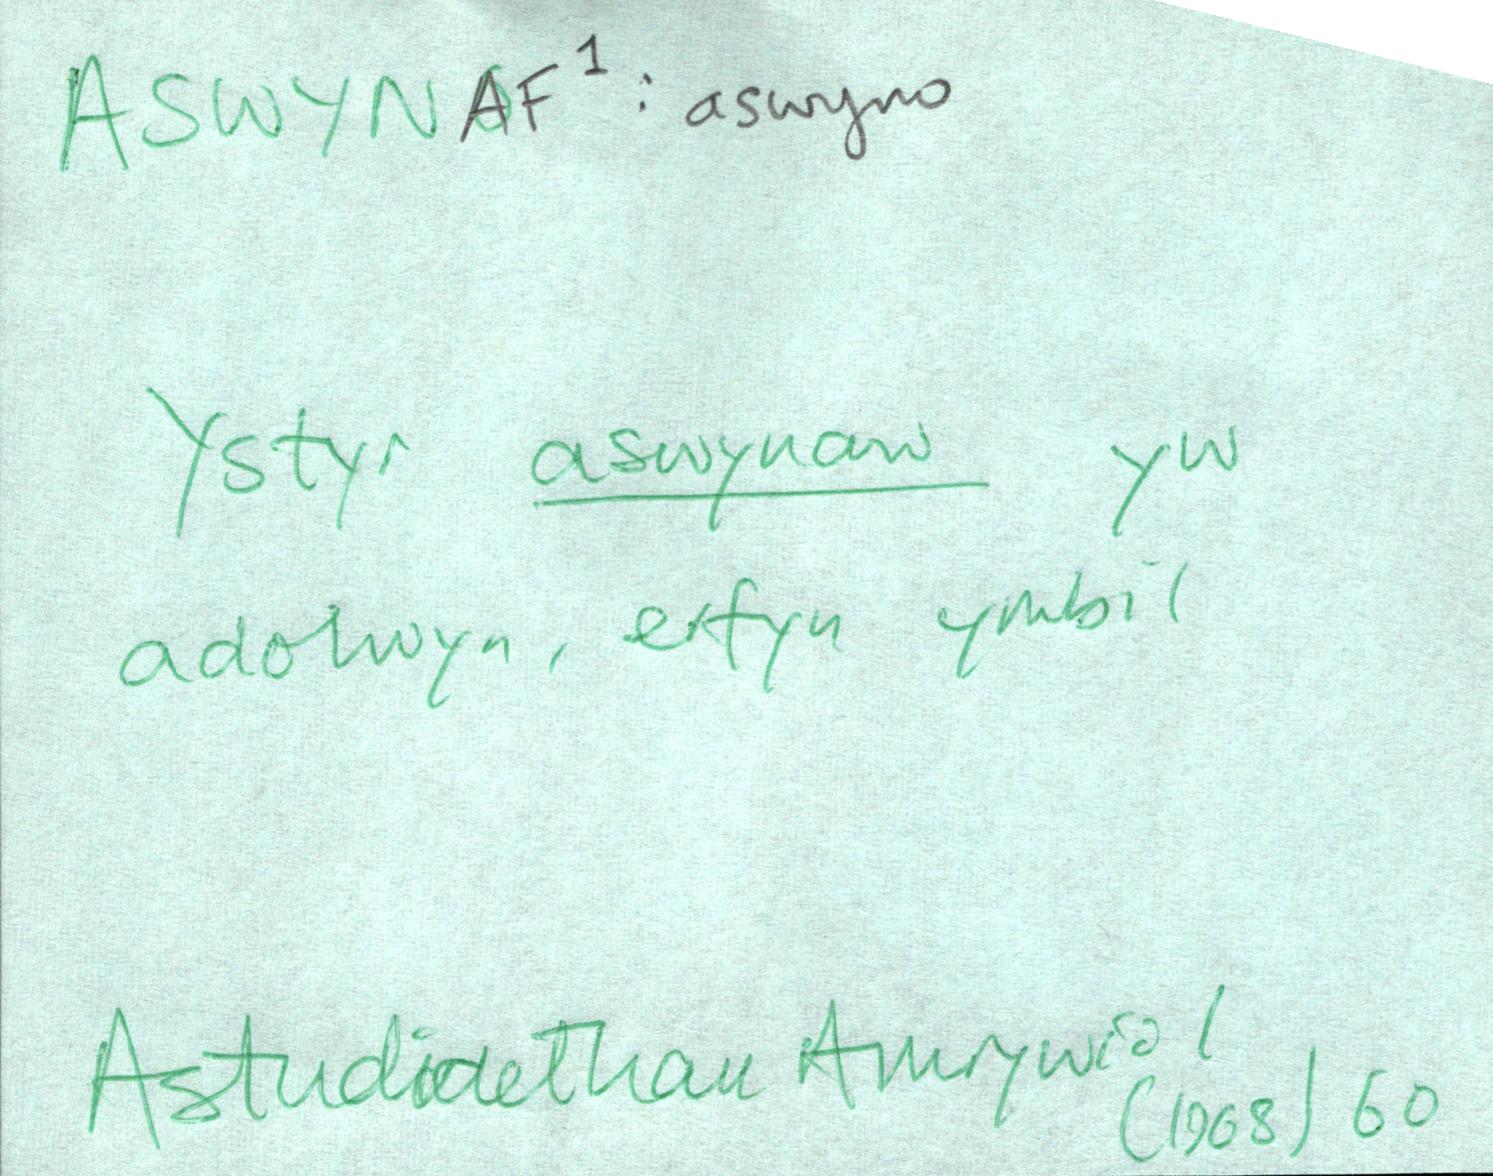 ASWYNAF¹: aswyno
Ystyr aswynaw yw
adolwyn, erfyn ymbil
Astudiaethau Amrywiol
(1968) 60